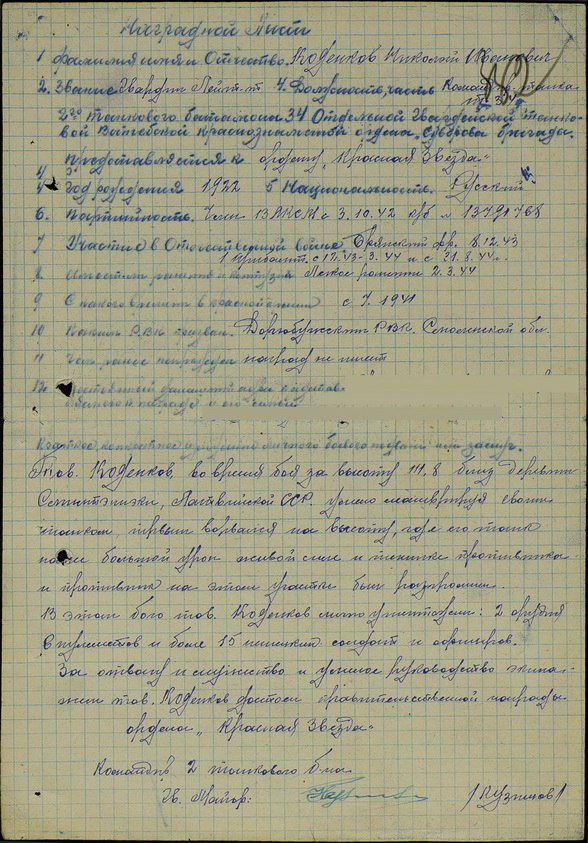 Наградной Лист
1 Фамилия имя и Отчество Коденков Николай Иванович
2. Звание Гвардии Лейт-т 4. Должность, часть Командир танка
2го танкового батальона 34 Отдельной Гвардейской танко-
вой Витебской краснознаменной ордена Суворова бригады.
Представляется к ордену „Красная Звезда"
4 Год рождения 1922 5 Национальность. Русский
6. Партийность. Член ВЛКСМ с 3.10.42 к/б № 13791768
7 Участие в Отечественной войне Брянский фр. 8.12.43
1 Прибалт. с 12.43-3.44 и с 21.8.44г.
8 ранения и контузии Легкое ранение 2.3.44
9 С какого времени в красной армии с 7. 1941
10 Каким РВК призван. Дорогобужским РВК. Смоленской обл.
11 Чем ранее награжден наград не имеет
12. Постоянный домашний адрес
и его семьи
Краткое, конкретное изложение личного боевого подвига или заслуг.
Тов. Коденков, во время боя за высоту 111,8 близ деревни
Латвийской ССР умело маневрируя своим
танком, первым ворвался на высоту, где его танк
нанес большой урон живой силе и технике противника
и противник на этом участке был разгромлен.
В этом бою тов. Коденков лично уничтожил: 2 орудия
6 пулеметов и более 15 немецких солдат и офицеров.
За отвагу и мужество и умелое руководство экипа-
жем тов. Коденков достоин правительственной награды
ордена „Красная Звезда"
Командир 2 танкового б-на
Гв. Майор: /Кузнецов/